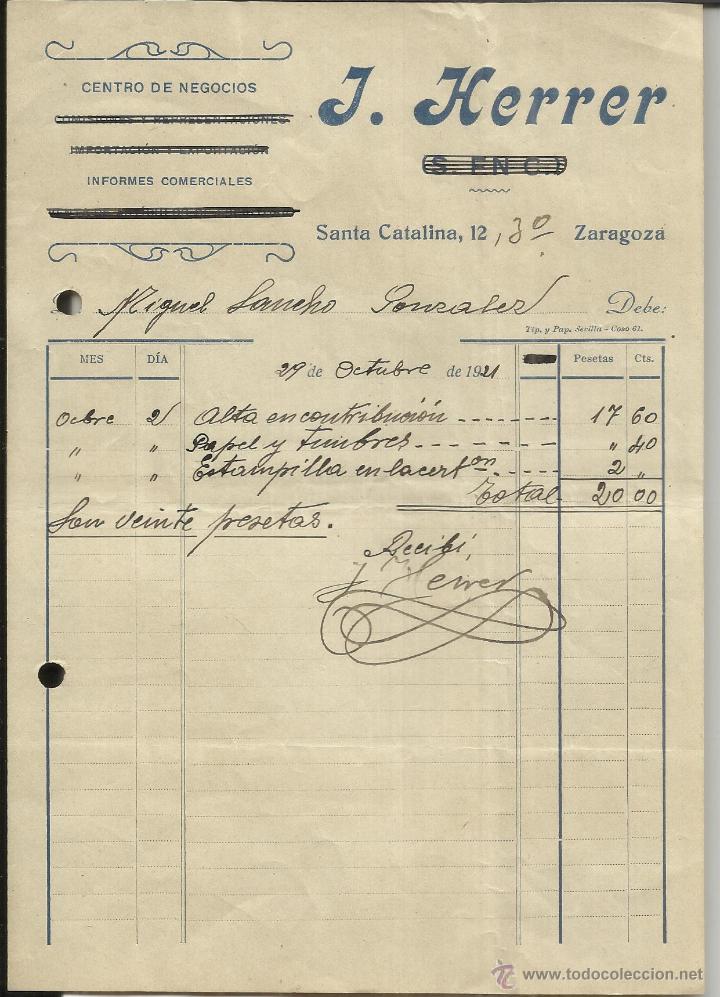 CENTRO DE NEGOCIOS
COMISIONES Y REPRESENTACIONES
IMPORTACIÓN Y EXPORTACIÓN
INFORMES COMERCIALES
J. Herrer
(S. EN C.)
Santa Catalina, 12, 3º Zaragoza
Miguel Sancho Gonzalez Debe:
Tip. y Pap. Sevilla - Coso 61.
MES DÍA 29 de Octubre de 1921 Pesetas Cts.
Ocbre 2 Alta en contribución 17 60
" " Papel y timbres " 40
" " Estampilla en la cert on 2 "
Total 20 00
Son veinte pesetas.
Recibí,
J Herrer
www.todocoleccion.net